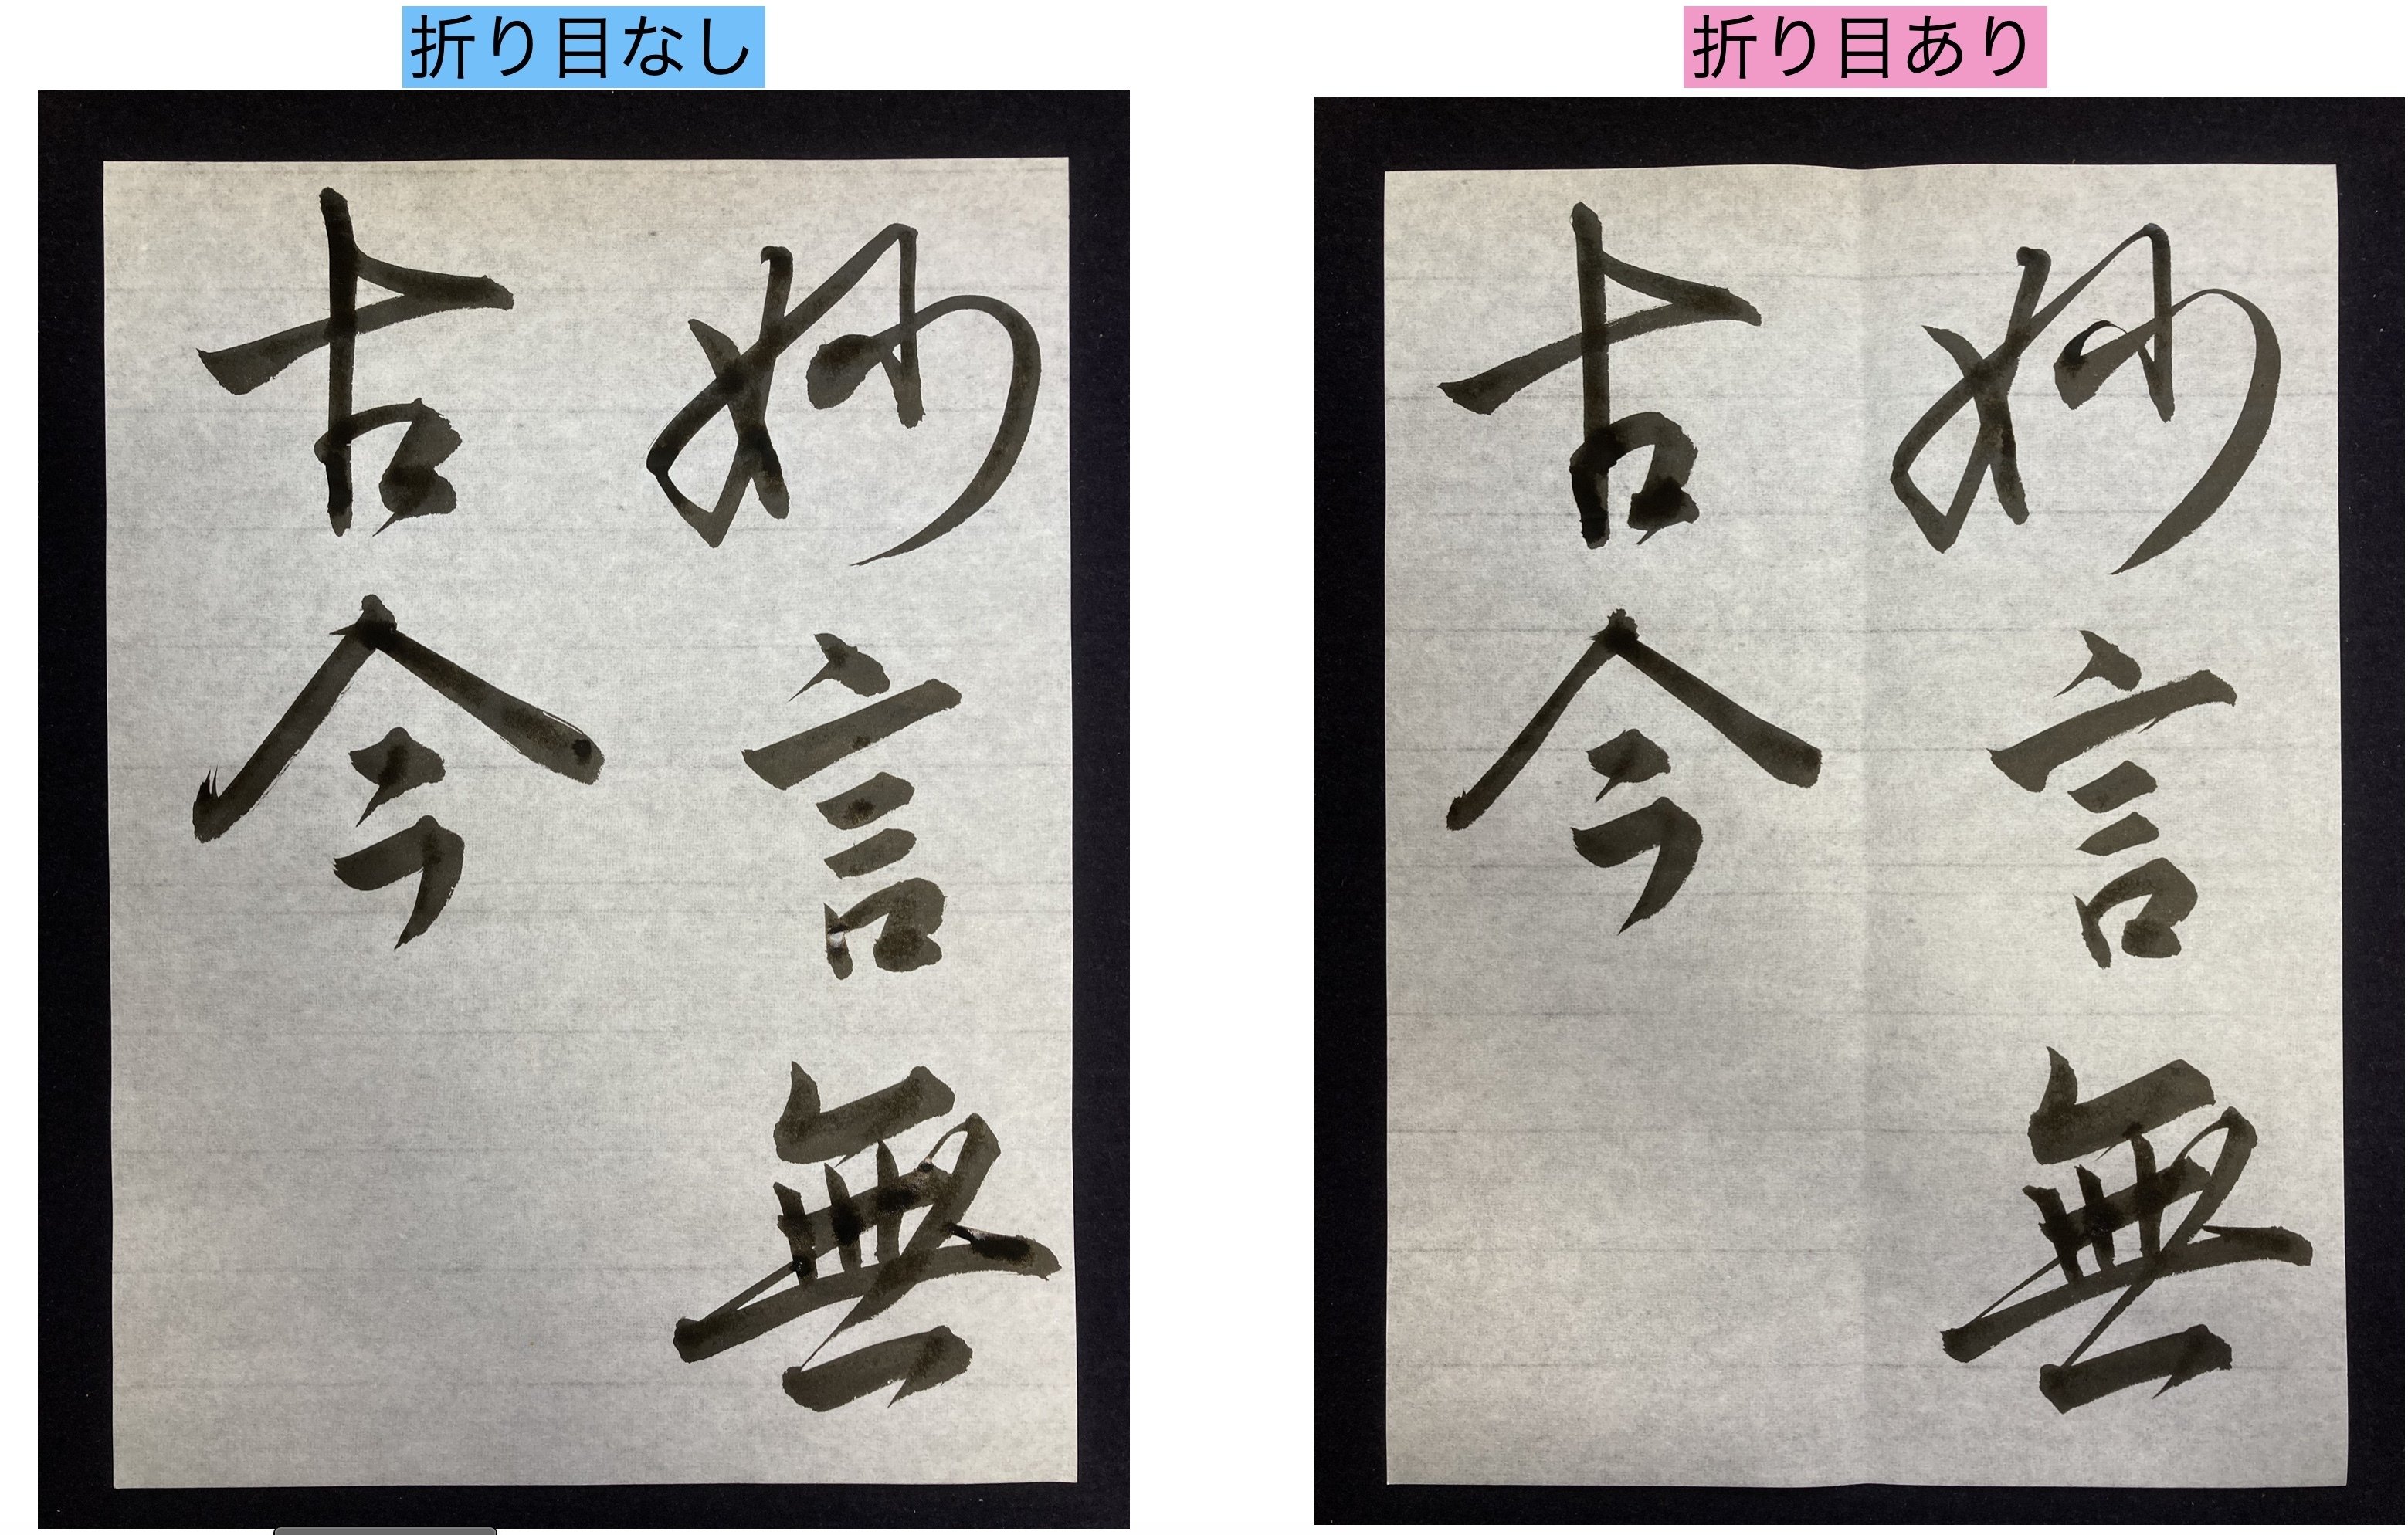 折り目なし
妙言無
古今
折り目あり
妙言無
古今